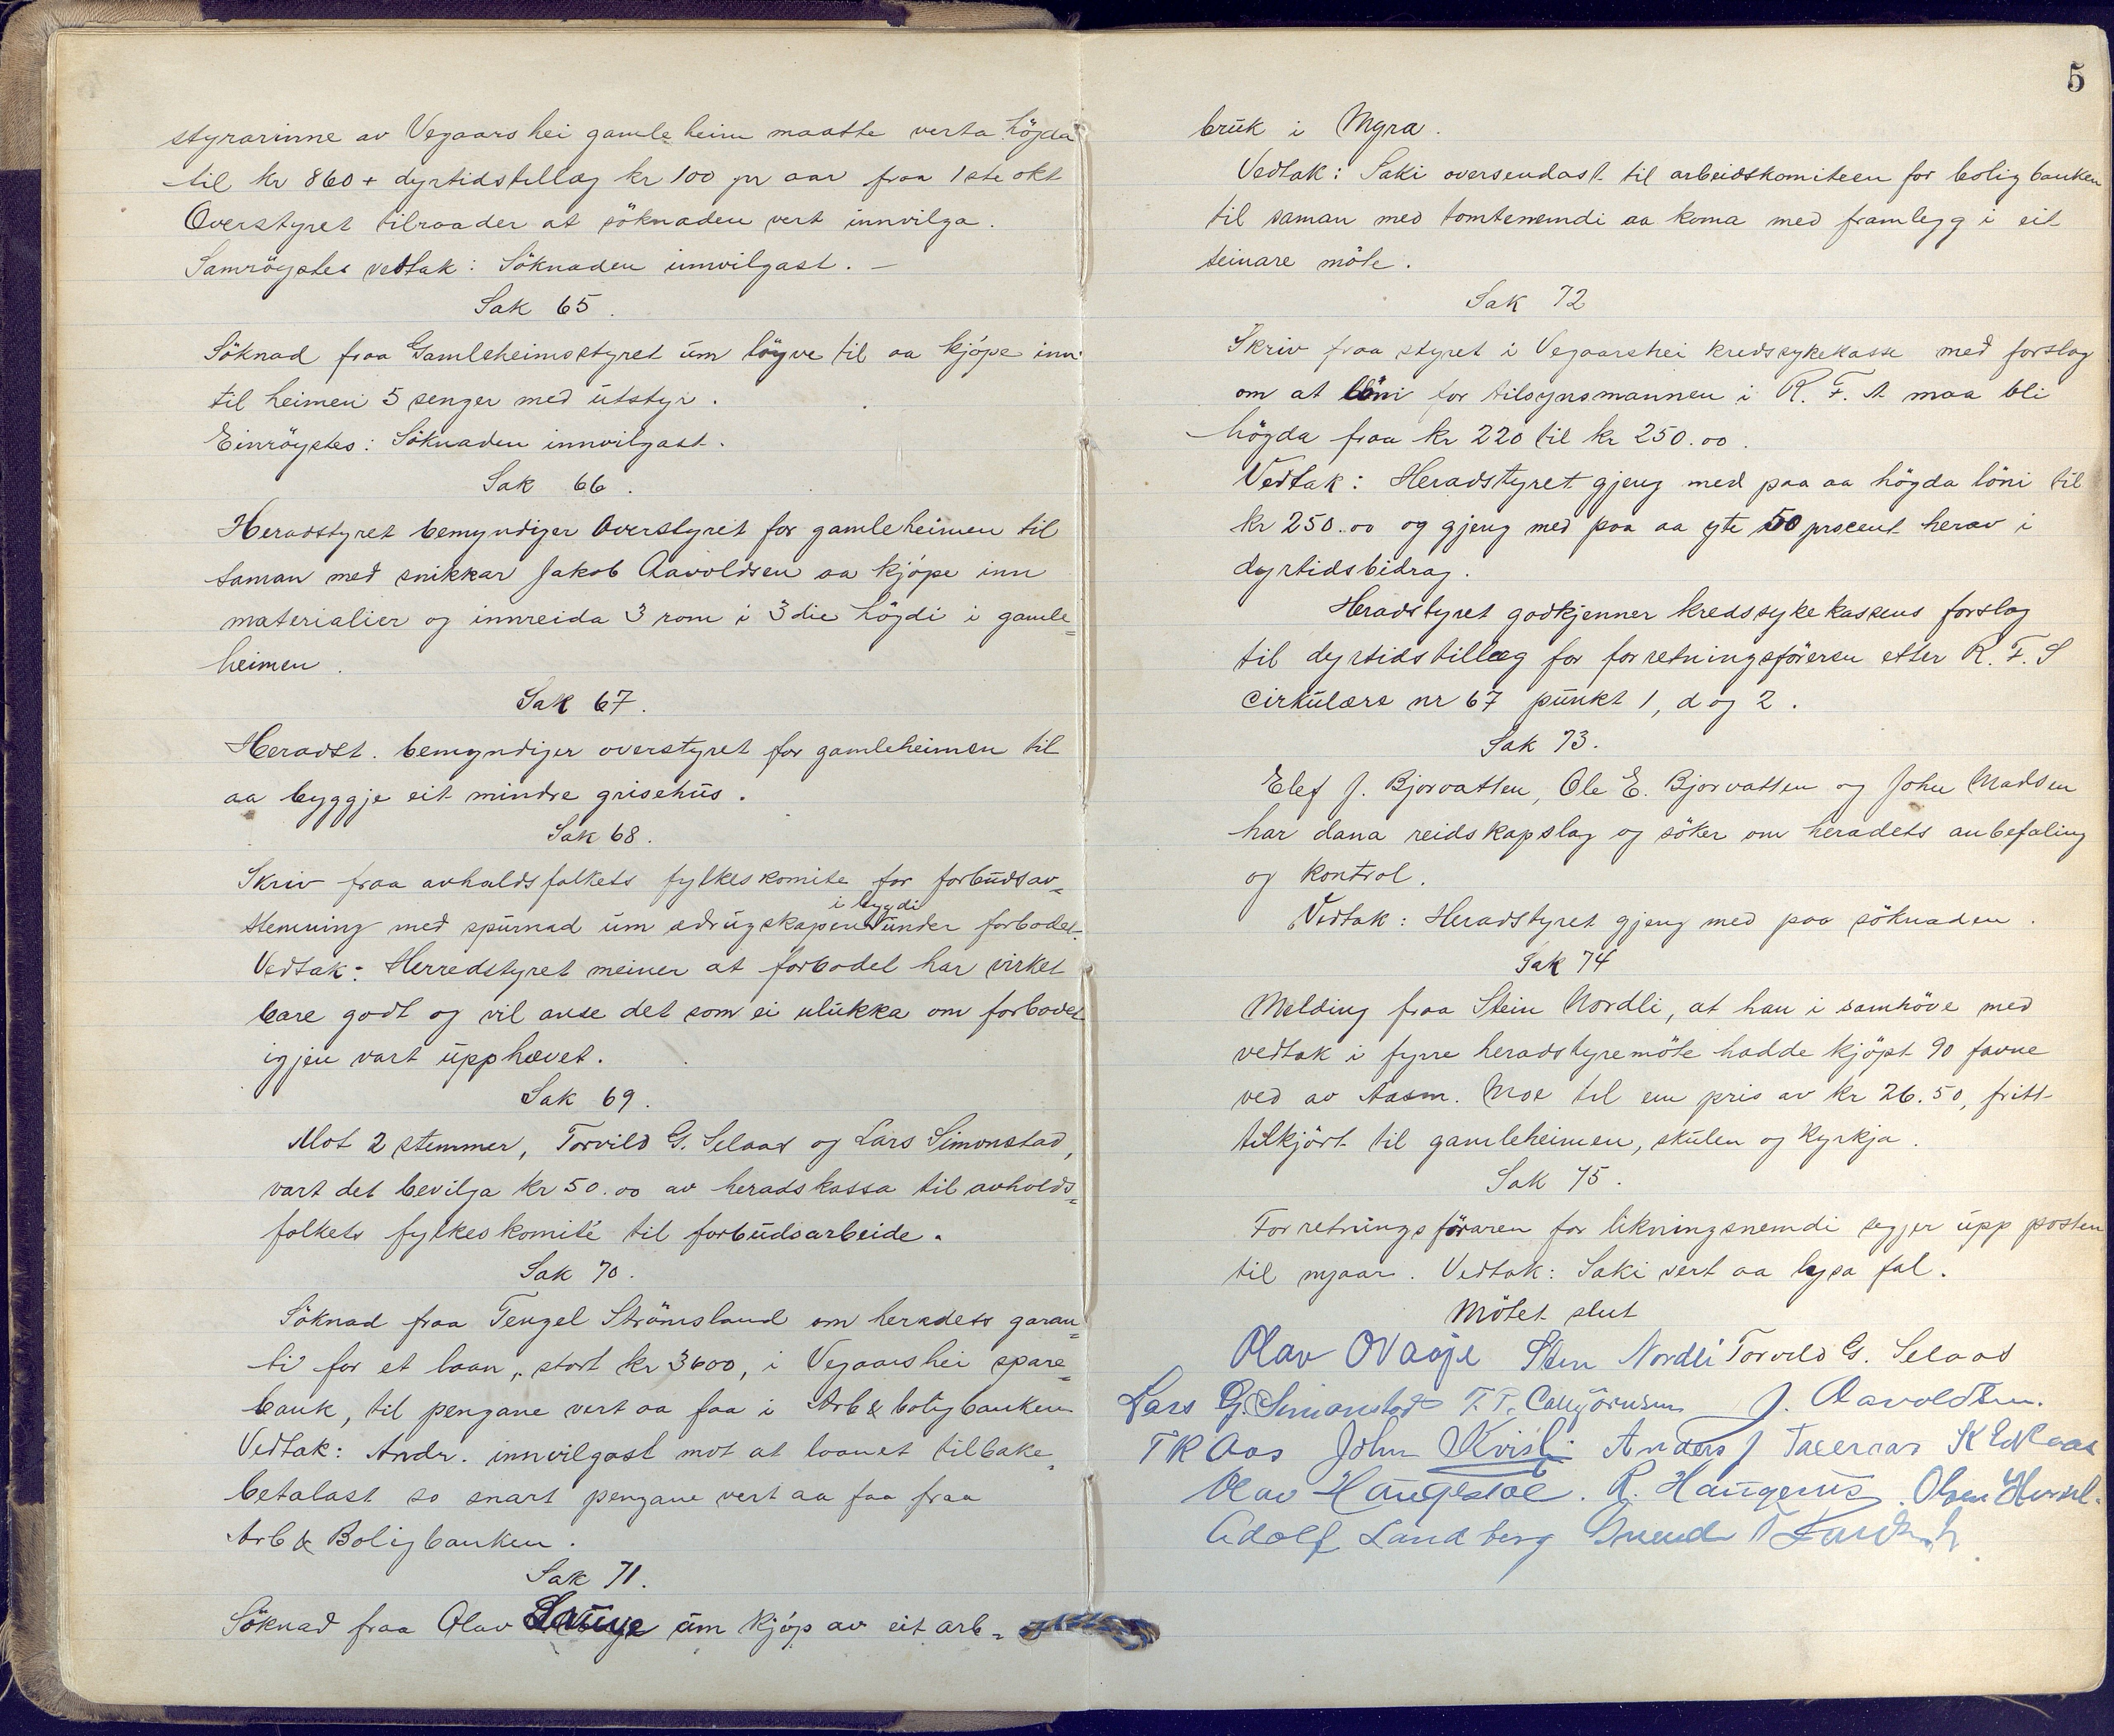 styrarinne av Vegaarshei gamleheim maatte verta högda
til kr 860 + dyrtidstillæg kr 100 pr aar fraa 1ste okt
Overstyret tilraader at söknaden vert innvilga.
Samröystes vedtak: Söknaden innvilgast. —
Sak 65.
Söknad fraa Gamleheimsstyret um löyve til aa kjöpe inn
til heimen 5 senger med utstyr.
Einröystes: Söknaden innvilgast.
Sak 66.
Heradstyret bemyndiger Overstyret for gamleheimen til
saman med snikkar Jakob Aavoldsen aa kjöpe inn
materialier og innreida 3 rom i 3die högdi i gamle=
heimen.
Sak 67.
Heradst. bemyndiger overstyret for gamleheimen til
aa byggje eit mindre grisehus.
Sak 68.
Skriv fraa avholdsfolkets fylkeskomite for forbudsav=
stemning med spurnad um ædrugskapen i bygdi under forbodet.
Vedtak: Herredstyret meiner at forbodet har virket
bare godt og vil anse det som ei ulukka om forbodet
igjen vart upphævet.
Sak 69.
Mot 2 stemmer, Torvild G. Selaas og Lars Simonstad,
vart det bevilga kr 50.00 av heradskassa til avholds=
folkets fylkeskomité til forbudsarbeide.
Sak 70.
Söknad fraa Tengel Strömsland om heradets garan=
ti for et laan, stort kr 3600, i Vegaarshei spare=
bank, til pengane vert aa faa i Arb & boligbanken
Vedtak: Andr. innvilgast mot at laanet tilbake=
betalast so snart pengane vert aa faa fraa
Arb & Boligbanken.
Sak 71.
Söknad fraa Olav um kjöp av eit arb=
5
bruk i Myra.
Vedtak: Saki oversendast til arbeidskomiteen for boligbanken
til saman med tomtenemndi aa koma med framlegg i eit
seinare möte.
Sak 72
Skriv fraa styret i Vegaarshei kredssykekasse med forslag
om at löni for tilsynsmannen i R. F. A maa bli
högda fraa kr 220 til kr 250.00.
Vedtak: Heradstyret gjeng med paa aa högda löni til
kr 250.00 og gjeng med paa aa yte 50 procent herav i
dyrtidsbidrag.
Heradstyret godkjenner kredssykekassens forslag
til dyrtidstillæg for forretningsföreren etter R. F. S
cirkulære nr 67 punkt 1, d og 2.
Sak 73.
Elef J. Bjorvatten, Ole E. Bjorvatten og John Madsen
har dana reidskapslag og söker om heradets anbefaling
og kontrol.
Vedtak: Heradstyret gjeng med paa söknaden.
Sak 74
Melding fraa Stein Nordli, at han i samhöve med
vedtak i fyrre heradstyremöte hadde kjöpt 90 favne
ved av Aasm. Moe til ein pris av kr 26.50, fritt
tilkjört til gamleheimen, skulen og kyrkja.
Sak 75.
Forretningsföraren for likningsnemdi segjer upp posten
til nyaar. Vedtak: Saki vert aa lysa fal.
Mötet slut
Olav Stein Nordli Torvild G. Selaas
Lars G. Simonstad T. T. J. Aavoldsen.
T R Aas John Kvisli Anders J
Olav Haugestöl. R. Haugenes. Olsen
Adolf Landberg